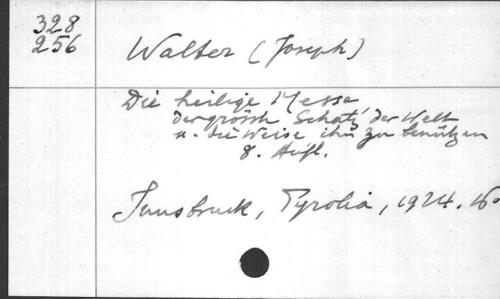 328
256
Walter (Joseph)
Die heilige Messe,
der grösste Schatz der Welt
u. die Weise ihn zu benützen
8. Aufl.
Innsbruck, Tyrolia, 1924. 16°